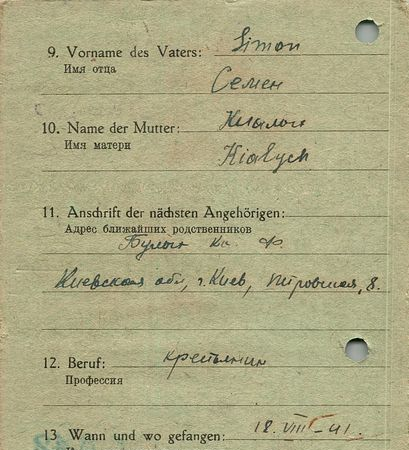 9. Vorname des Vaters: Simon
Имя отца
Семен
10. Name der Mutter:
Имя матери
11. Anschrift der nächsten Angehörigen:
Адрес ближайших родственников
Киевская обл, г. Киев, 8.
12. Beruf: крестьянин
Профессия
13 Wann und wo gefangen: 18. VIII-41.